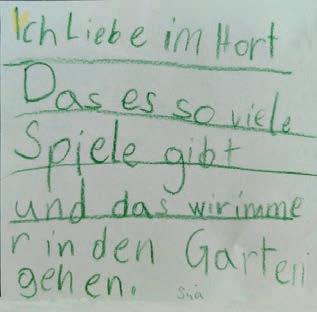 Ich Liebe im Hort
Das es so viele
Spiele gibt
und das wir imme
r in den Garten
gehen.